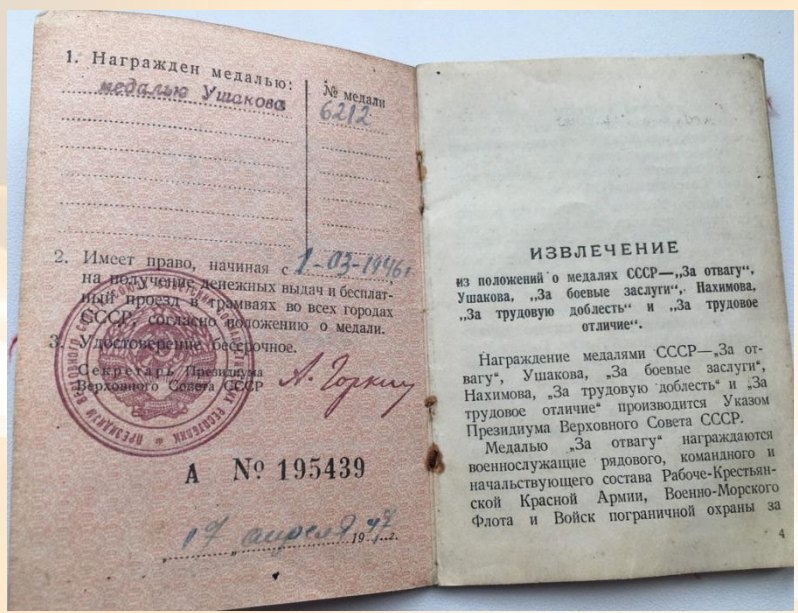 1. Награжден медалью:
медалью Ушакова
№ медали
6212
2. Имеет право, начиная с 1-03-1946г
на получение денежных выдач и бесплат-
ный проезд в трамваях во всех городах
СССР, согласно положению о медали.
3. Удостоверение бессрочное.
Секретарь Президиума
Верховного Совета СССР
А. Горкин
А № 195439
17 апреля 1947 г.
ИЗВЛЕЧЕНИЕ
из положений о медалях СССР—„За отвагу“,
Ушакова, „За боевые заслуги“, Нахимова,
„За трудовую доблесть“ и „За трудовое
отличие“.
Награждение медалями СССР—„За от-
вагу“, Ушакова, „За боевые заслуги“,
Нахимова, „За трудовую доблесть“ и „За
трудовое отличие“ производится Указом
Президиума Верховного Совета СССР.
Медалью „За отвагу“ награждаются
военнослужащие рядового, командного и
начальствующего состава Рабоче-Крестьян-
ской Красной Армии, Военно-Морского
Флота и Войск пограничной охраны за
4